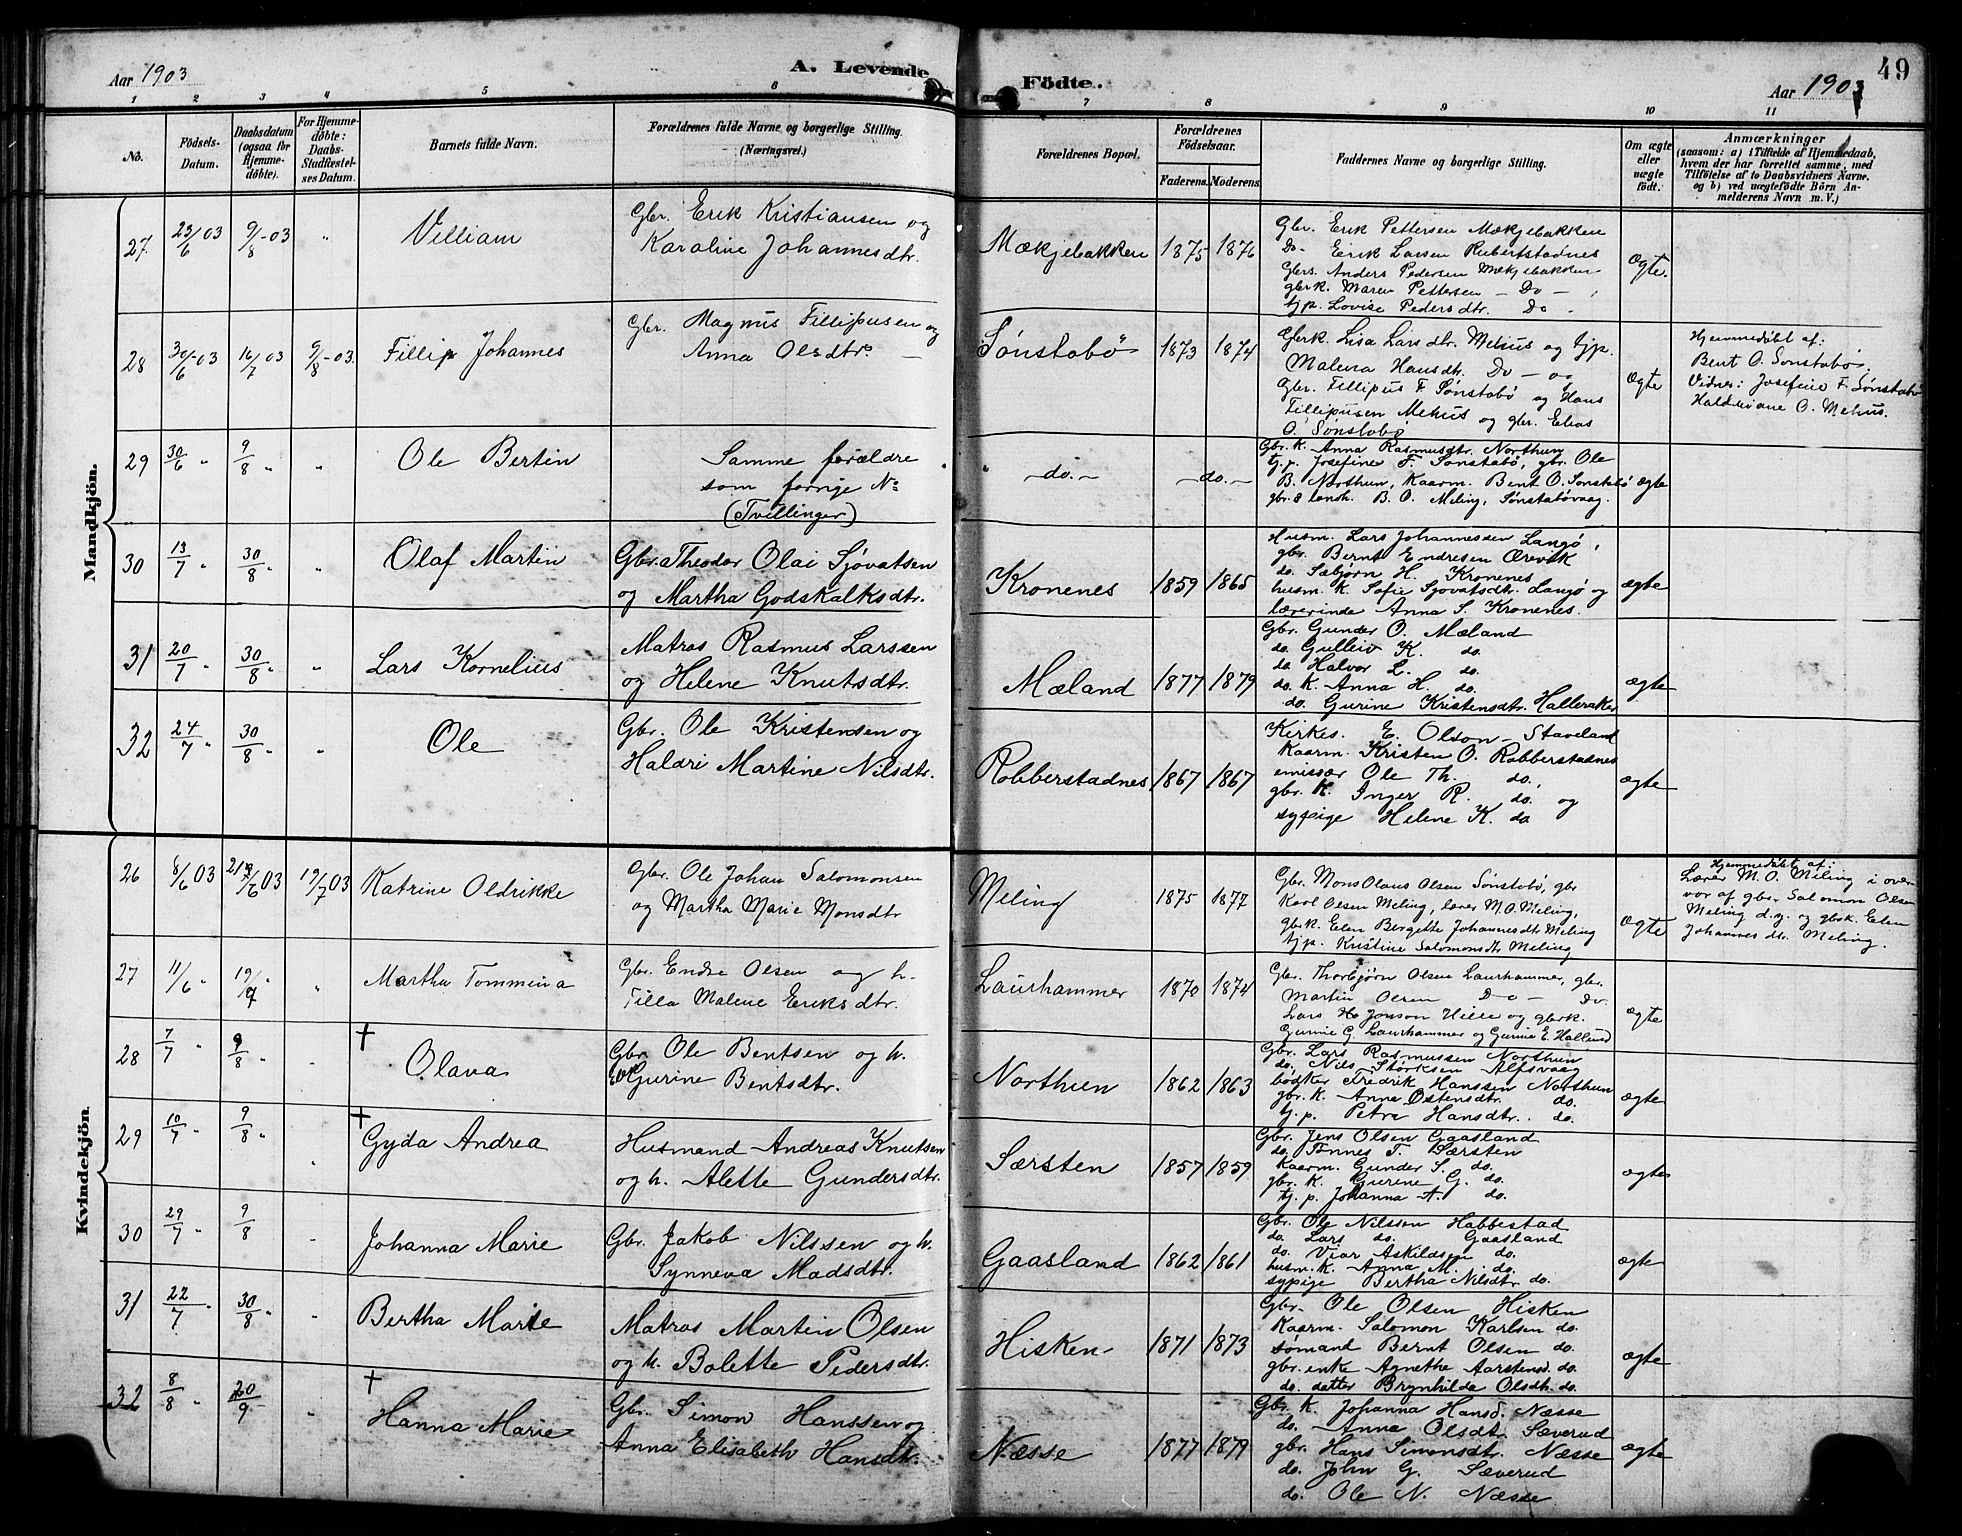 Aar 1903
A. Levende Födte.
Aar 1903
49
1 2 3 4 5 6 7 8 9 10 11
No.
Födsels-Datum.
Daabsdatum (ogsaa for Hjemme-döbte).
For Hjemme-döbte: Daabs-Stadfæstel-ses Datum.
Barnets fulde Navn.
Forældrenes fulde Navne og borgerlige Stilling. (Næringsvei.)
Forældrenes Bopæl.
Forældrenes Födselsaar.
Faderens. Moderens.
Faddernes Navne og borgerlige Stilling.
Om ægte eller uægte födt.
Anmærkninger
(saasom: a) i Tilfælde af Hjemmedaab, hvem der har forrettet samme, med Tilföielse af to Daabsvidners Navne. og b) ved uægtefödte Börn An-melderens Navn m.V.)
Mandkjön.
27 23/6 03 9/8-03 " Villiam
Gbr. Erik Kristiansen og
Karoline Johannesdtr.
Mækjebakken 1875 1876
Gbr. Erik Pettersen Mækjebakken
Do Erik Larsen Rubertstadnes
Gbrs. Anders Pedersen Mækjebakken
gbrk. Maren Pettersen - Do -
tjp. Lovise Pedersdtr. Do.
Ægte.
28 30/6-03 16/7 03 9/8-03. Fillip Johannes
Gbr. Magnus Fillipusen og
Anna Olsdtr.
Sønstabø 1873 1874
Gbrk. Lisa Larsdtr. Mehus og tjp.
Malena Hansdtr. Do - og
Gbr. Fillipus F. Sønstabø og Hans
Fillipusen Mehus og gbr. Elias
O. Sønstabø
Ægte
Hjemmedøbt af:
Bent O. Sønstabø.
Vidner: Josefine F. Sønstabø
Haldriane O. Mehus.
29 30/6 " 9/8 " " Ole Bertin
Samme forældre
som forrige No
(Tvillinger)
" - do. - - do. -
Gbr. K. Anna Rasmusdtr. Northun
tj. p. Josefine F. Sønstabø, gbr. Ole
B. Northun, Kaarm. Bent O. Sønstabø
gbr. & landh. B. O. Meling, Sønstabøvaag.
ægte
30 13/7 " 30/8 " " Olaf Martin
Gbr. Theodor Olai Sjovatsen
og Martha Godskalksdtr.
Kronenes 1859 1865
Husm. Lars Johannessen Langø,
gbr. Bernt Endresen Ørevik
do. Sæbjørn H. Kronenes
husm. K. Sofie Sjovatsdtr. Langø og
lærerinde Anna S. Kronenes.
ægte
31 20/7 " 30/8 " " Lars Kornelius
Matros Rasmus Larssen
og Helene Knutsdtr.
Mæland 1877 1879
Gbr. Gunder O. Mæland
do. Gulleiv K. do.
do. Halvor L. do.
do. K. Anna H. do.
do. Gurine Kristensdtr. Halleraker
ægte
32 24/7 " 30/8 " Ole
Gbr. Ole Kristensen og
Haldri Martine Nilsdtr.
Robberstadnes 1867 1867
Kirkes. E. Olson Staveland
Kaarm. Kristen O. Robberstadnes
emissær Ole Th. do.
gbr. K. Inger R. do. og
sypige Helene K. do
ægte
Kvindekjön.
26 8/6 03 6/03 19/7 03 Katrine Oldrikke
Gbr. Ole Johan Salomonsen
og Martha Marie Monsdtr
Meling 1875 1877
Gbr. Mons Olaus Olsen Sønstabø, gbr
Karl Olsen Meling, lærer M. O. Meling,
gbrk. Elen Bergette Johannesdtr Meling
tjp. Kristine Salomonsdtr Meling
Ægte
Hjemmedøbt af:
Lærer M. O. Meling i over-
vær af gbr. Salomon Olsen
Meling d.y. og gbrk. Elen
Johannesdtr. Meling.
27 11/6 " 19/7 " Martha Tommina
Gbr. Endre Olsen og h.
Tilla Malene Eriksdtr.
Laurhammer 1870 1874
Gbr. Thorbjørn Olsen Laurhammer, gbr.
Martin Olsen Do - Do.
Lars H. Jonson Hille og gbrk.
Gurine G. Laurhammer og Gurine E. Hallund
ægte
28 7/7 " 9/8 " † Olava
Gbr. Ole Bentsen og h.
Gurine Bentsdtr.
Northun 1862 1863
Gbr. Lars Rasmussen Northun
do. Nils Størksen Alfsvaag
bødker Fredrik Hanssen Northun
gbr. K. Anna Østensdtr. do.
tj. p. Petra Hansdtr. do.
ægte
29 10/7 " 9/8 " " † Gyda Andrea
Husmand Andreas Knutsen
og h. Alette Gundersdtr.
Særsten 1857 1859
Gbr. Jens Olsen Gaasland
do. Tønnes T. Særsten
Kaarm. Gunder S. do.
gbr. K. Gurine G. do.
tj. p. Johanna A. do.
ægte
30 29/7 " 9/8 " Johanna Marie
Gbr. Jakob Nilssen og h.
Synneva Madsdtr.
Gaasland 1862 1861
Gbr. Ole Nilssen Habbestad
do. Lars do. Gaasland
do. Viar Askildsen do.
husm. K. Anna M. do.
sypige Bertha Nilsdtr do.
ægte
31 22/7 " 30/8 " " Bertha Marie
Matros Martin Olsen
og h. Bolette Pedersdtr.
Hisken 1871 1873
Gbr. Ole Olsen Hisken
Kaarm. Salomon Karlsen do.
sømand Bernt Olsen do.
gbr. enke Agnethe Aarstensd. do.
do. datter Brynhilda Olsdtr. do.
ægte
32 8/8 " 20/9 " † Hanna Marie
Gbr. Simon Hanssen og
Anna Elisabeth Hansdtr.
Næsse 1877 1879
Gbr. K. Johanna Hansd. Næsse
do. Anna Olsdtr. Sæverud
gbr. Hans Simonsdtr. Næsse
do. John G. Sæverud
do. Ole N. Næsse
ægte